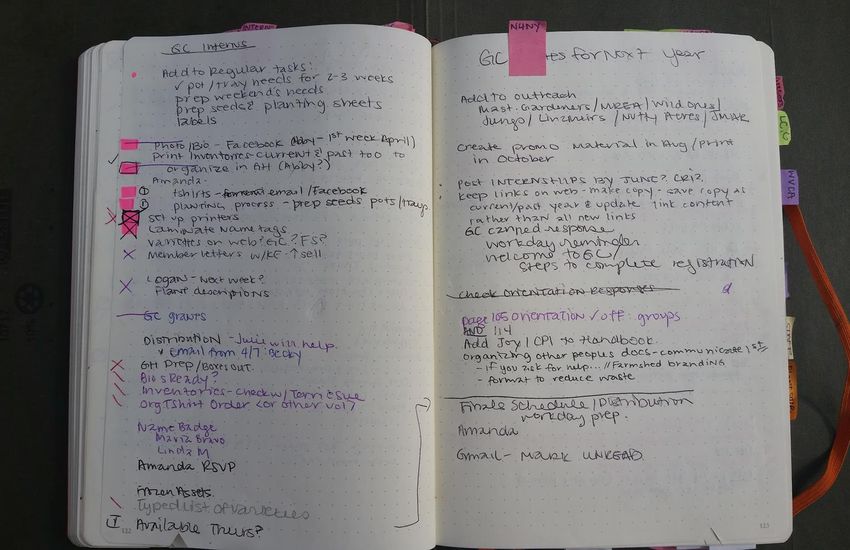 INTERNS
GC Interns
Add to Regular tasks:
✓ pot/tray needs for 2-3 weeks
prep weekend's needs
prep seeds & planting sheets
labels
Photo/Bio - Facebook (Abby - 1st week April)
Print Inventories - current & past too to
organize in AH (Abby?)
Amanda -
tshirts - email/Facebook
planting process - prep seeds pots/trays
Set up printers
Laminate Name tags
Varieties on web? GC? FS?
Member letters w/KE - ↑ sell
Logan - Next week?
Plant descriptions
GC grants
Distribution - Julie will help.
email from 4/7: Becky
GH Prep/Boxes out.
Bios Ready?
Inventories - check w/ Terri & Sue
Org Tshirt Order (or other vol)
Name Badge
Maria Bravo
Linda M
Amanda RSVP
Frozen Assets.
Typed list of varieties
Available Thurs?
122
N4NY
GC for Next Year
Add to outreach
Mast. Gardeners/MREA/Wild Ones/
Jungs/ /Nutty Acres/
Create promo material in Aug/Print
in October
Post INTERNSHIPS BY JUNE?
Keep links on web - make copy - save copy as
current/past year & update link content
rather than all new links
GC canned response
workday reminder
welcome to GC/
steps to complete registration
Check Orientation Responses
page 105 Orientation ✓ off: groups
AND 114
Add Joy/CPI to Handbook.
Organizing other peoples docs - communicate 1st
- if you ask for help...//Farmshed branding
- format to reduce waste
Finale Schedule/Distribution
workday prep.
Amanda
Gmail - MARK UNREAD
123
WVCA